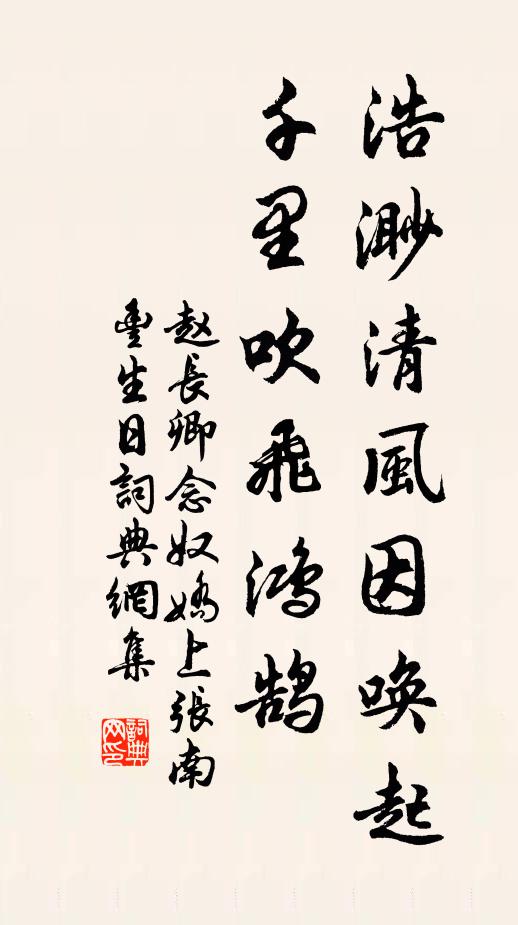 浩渺清風因喚起
千里吹飛鴻鵠
赵長卿念奴嬌上張南
豊生日詞典網集
詞典网印